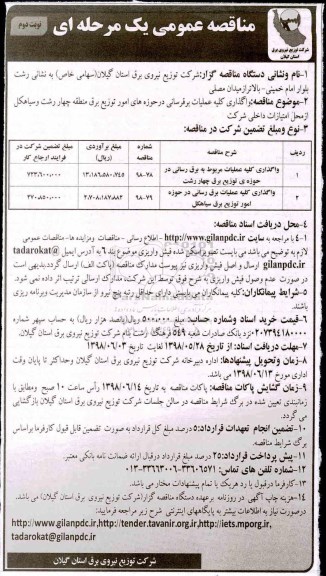 نوبت دوم
مناقصه عمومی یک مرحله ای
شرکت توزیع نیروی برق
استان گیلان
۱-نام ونشانی دستگاه مناقصه گزار:شرکت توزیع نیروی برق استان گیلان(سهامی خاص) به نشانی رشت
بلوار امام خمینی- بالاترازمیدان مصلی
۲-موضوع مناقصه:واگذاری کلیه عملیات برقرسانی درحوزه های امور توزیع برق منطقه چهار رشت وسیاهکل
ازمحل امتیازات داخلی شرکت
۳-نوع ومبلغ تضمین شرکت در مناقصه:
ردیف
شرح مناقصه
شماره مناقصه
مبلغ برآوردی (ریال)
مبلغ تضمین شرکت در فرایند ارجاع کار
۱
واگذاری کلیه عملیات مربوط به برق رسانی در حوزه ی توزیع برق چهار رشت
۹۸-۷۸
۱۳،۱۸۶،۵۸۰،۷۴۵
۷۳۳،۶۰۰،۰۰۰
۲
واگذاری کلیه عملیات برق رسانی در حوزه امور توزیع برق سیاهکل
۹۸-۷۹
۳۷۰،۸۵۰،۰۰۰
۴-محل دریافت اسناد مناقصه:
۴-۱ با مراجعه به سایت http://www.gilanpdc.ir - اطلاع رسانی - مناقصات ومزایده ها- مناقصات عمومی
لازم به توضیح می باشد می بایست تصویراسکن شده فیش واریزی موضوع بند ۶ به آدرس ایمیل tadarokat@
gilanpdc.ir ارسال و اصل فیش واریزی نیز پیوست مدارک مناقصه (پاکت الف) ارسال گردد.بدیهی است
در صورت عدم وصول فیش واریزی به شرح فوق توسط این شرکت، مدارک ارسالی ترتیب اثر داده نمی شود.
۵-شرایط پیمانکاران:کلیه پیمانکاران می بایستی دارای حداقل رتبه ۵ نیرو از سازمان مدیریت وبرنامه ریزی
باشند.
۶-قیمت خرید اسناد وشماره حساب: مبلغ ۵۰۰،۰۰۰ ریال(پانصد هزار ریال) به حساب سپهر شماره
۰۲۰۷۳۹۴۱۸۰۰۰ نزد بانک صادرات شعبه ۵۴۹ فرهنگ رشت بنام شرکت توزیع نیروی برق استان گیلان.
۷-مهلت دریافت اسناد: از تاریخ ۱۳۹۸/۰۵/۲۸ لغایت تاریخ ۱۳۹۸/۰۶/۰۳
۸-زمان وتحویل پیشنهادها: اداره دبیرخانه شرکت توزیع نیروی برق استان گیلان وحداکثر تا پایان وقت
اداری مورخ ۱۳۹۸/۰۶/۱۳ می باشد.
۹-زمان گشایش پاکات مناقصه: پاکات مناقصه به تاریخ ۱۳۹۸/۰۶/۱۴ رأس ساعت ۱۰ صبح ومطابق با
زمانبندی تعیین شده در برگ شرایط مناقصه در سالن جلسات شرکت توزیع نیروی برق استان گیلان بازگشایی
می گردد.
۱۰-تضمین انجام تعهدات قرارداد:۵ درصد مبلغ کل قرارداد به صورت تضمین قابل قبول کارفرما براساس
برگ شرایط مناقصه.
۱۱-پیش پرداخت قرارداد:۲۵ درصد مبلغ قرارداد درقبال ارائه ضمانت نامه بانکی معتبر.
۱۲-شماره تلفن های تماس: ۳۳۶۰۶۵۷۱-۰۱۳-۳۳۶۶۳۰۰۶
۱۳-کارفرما درقبول یا رد هریک یا تمام پیشنهادات مختار می باشد.
۱۴-هزینه چاپ آگهی در روزنامه برعهده دستگاه مناقصه گزار(شرکت توزیع نیروی برق استان گیلان) می باشد.
درصورت نیاز به اطلاعات بیشتر به پایگاههای اینترنتی شرح زیر مراجعه فرمایید:
http://www.gilanpdc.ir,http://tender.tavanir.org.ir,http://iets.mporg.ir,
tadarokat@gilanpdc.ir
شرکت توزیع نیروی برق استان گیلان